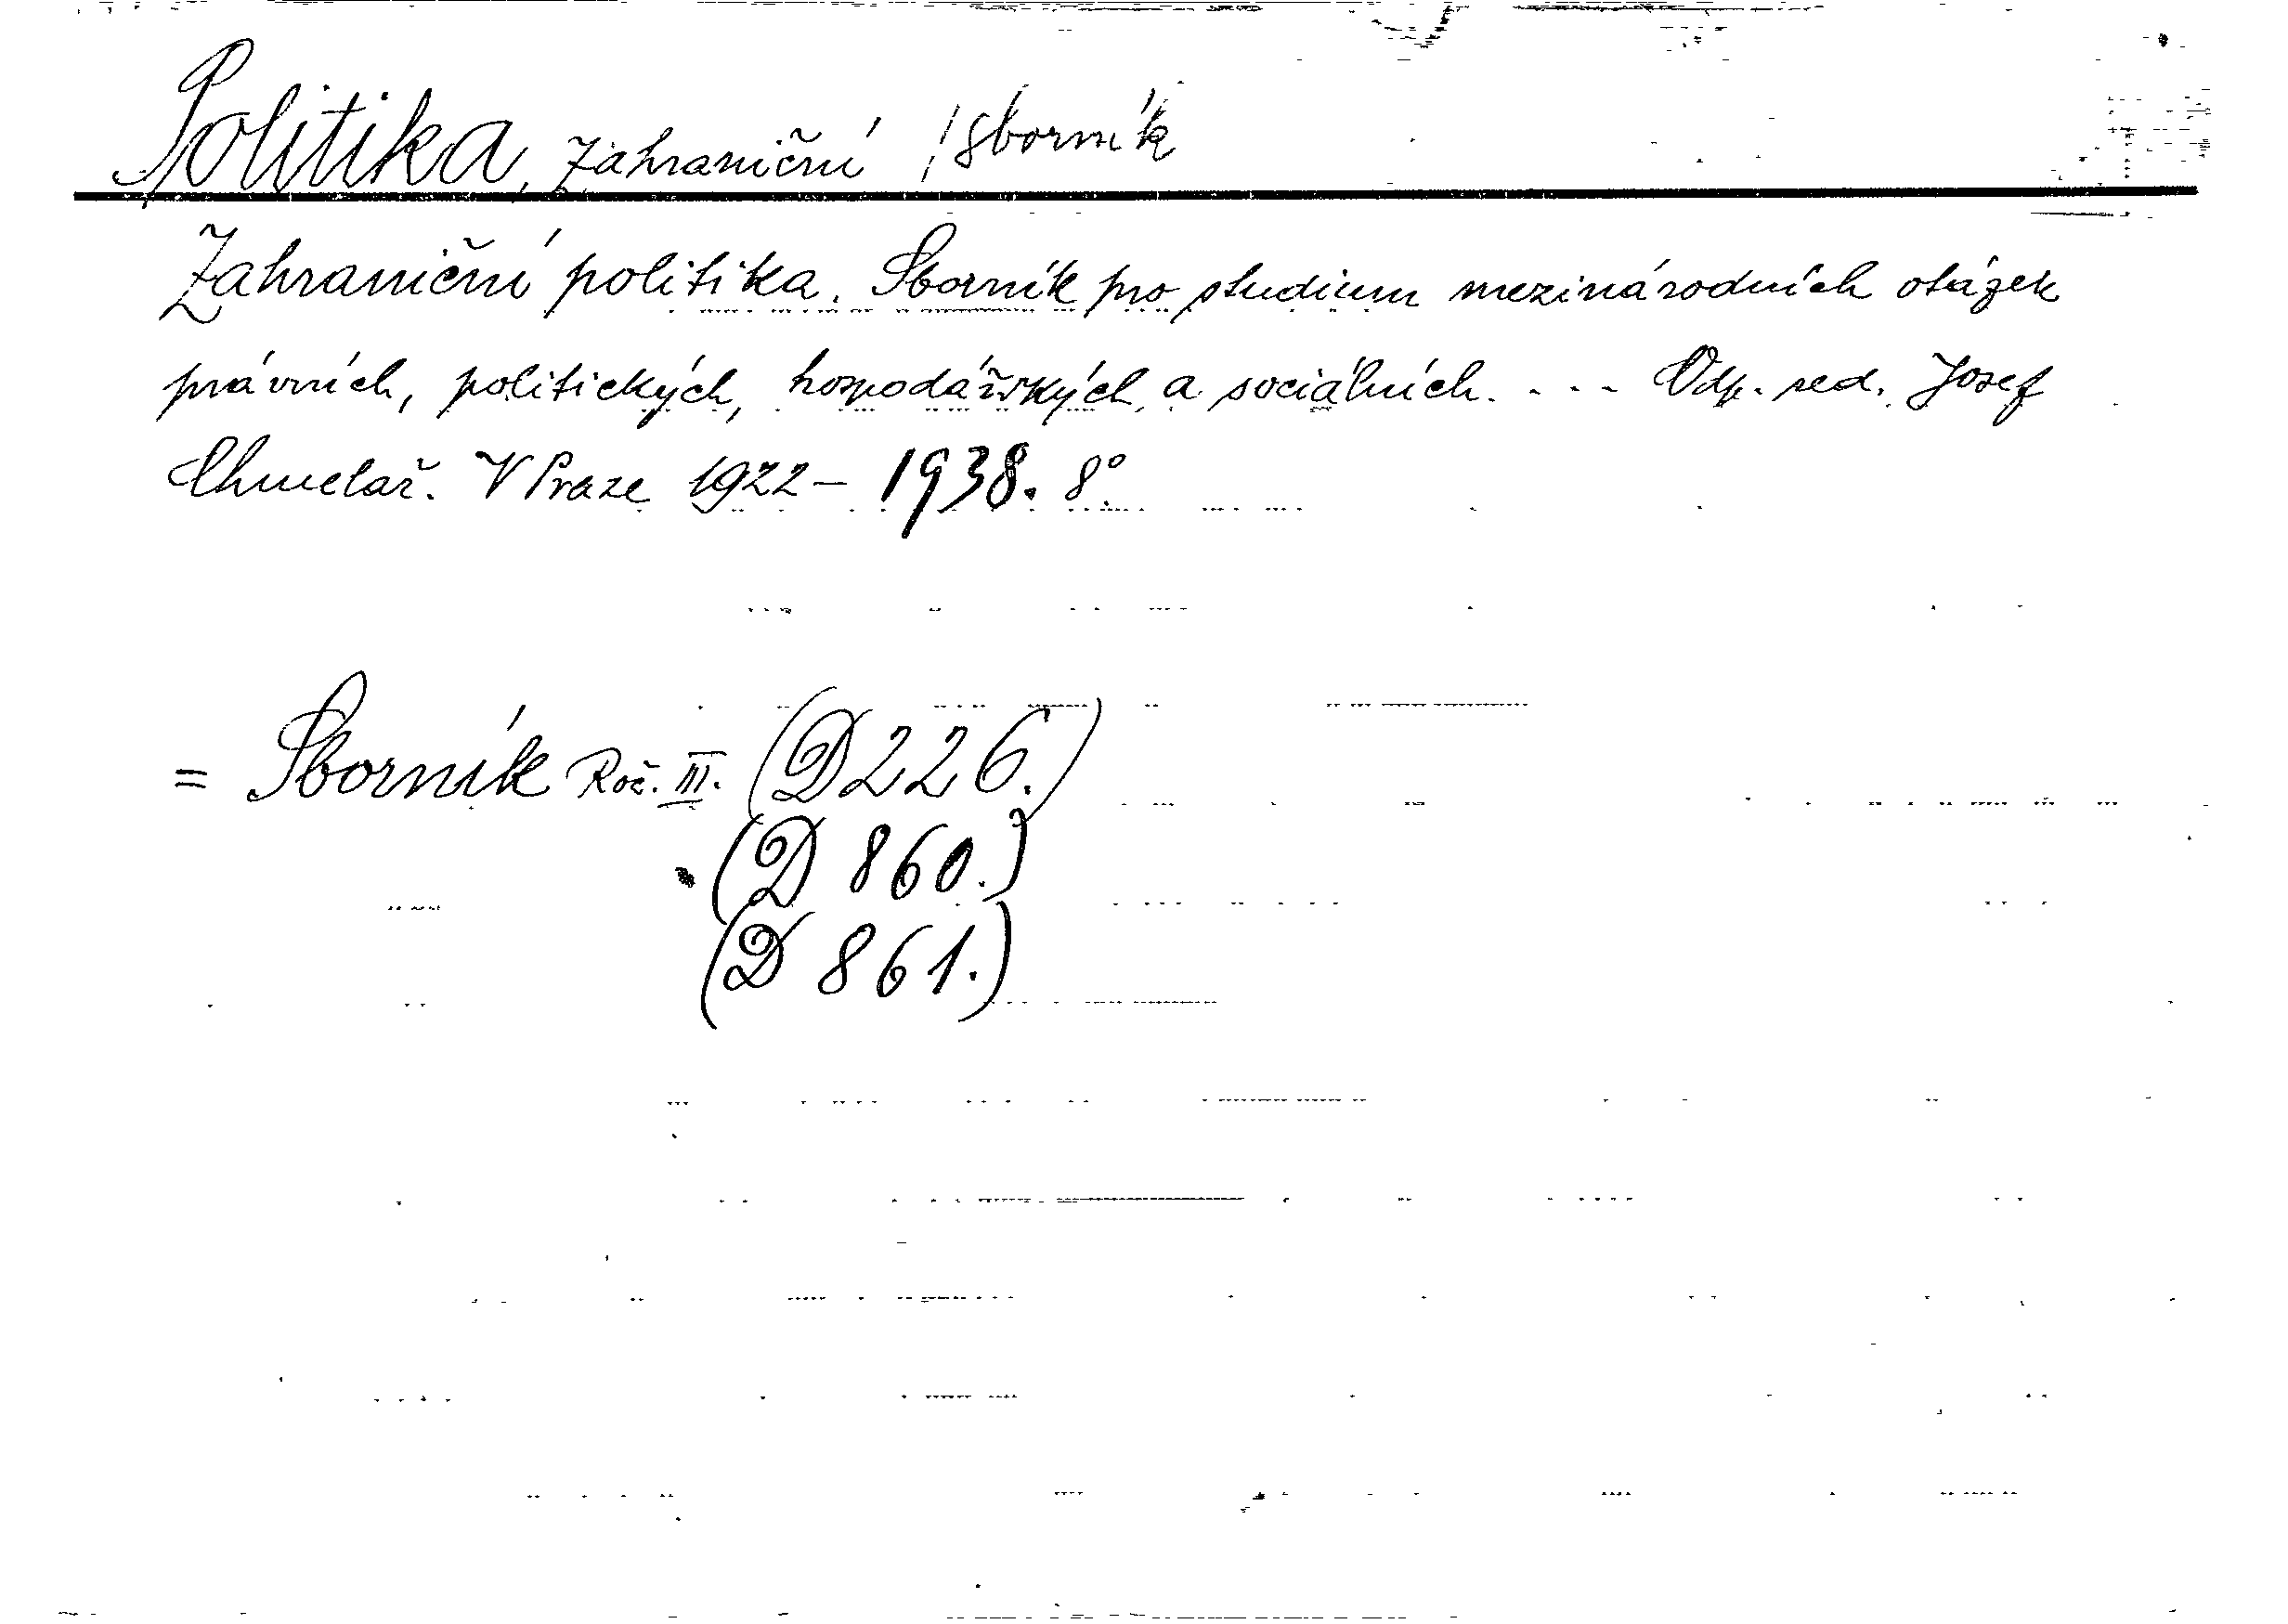 Politika, zahraniční / sborník
Zahraniční politika. Sborník pro studium mezinárodních otázek
právních, politických, hospodářských a sociálních. - - - Odp. red. Josef
Chmelař. V Praze 1922 - 1938. 8°.
= Sborník Roč. III. (D 226.)
(D 860.)
(D 861.)